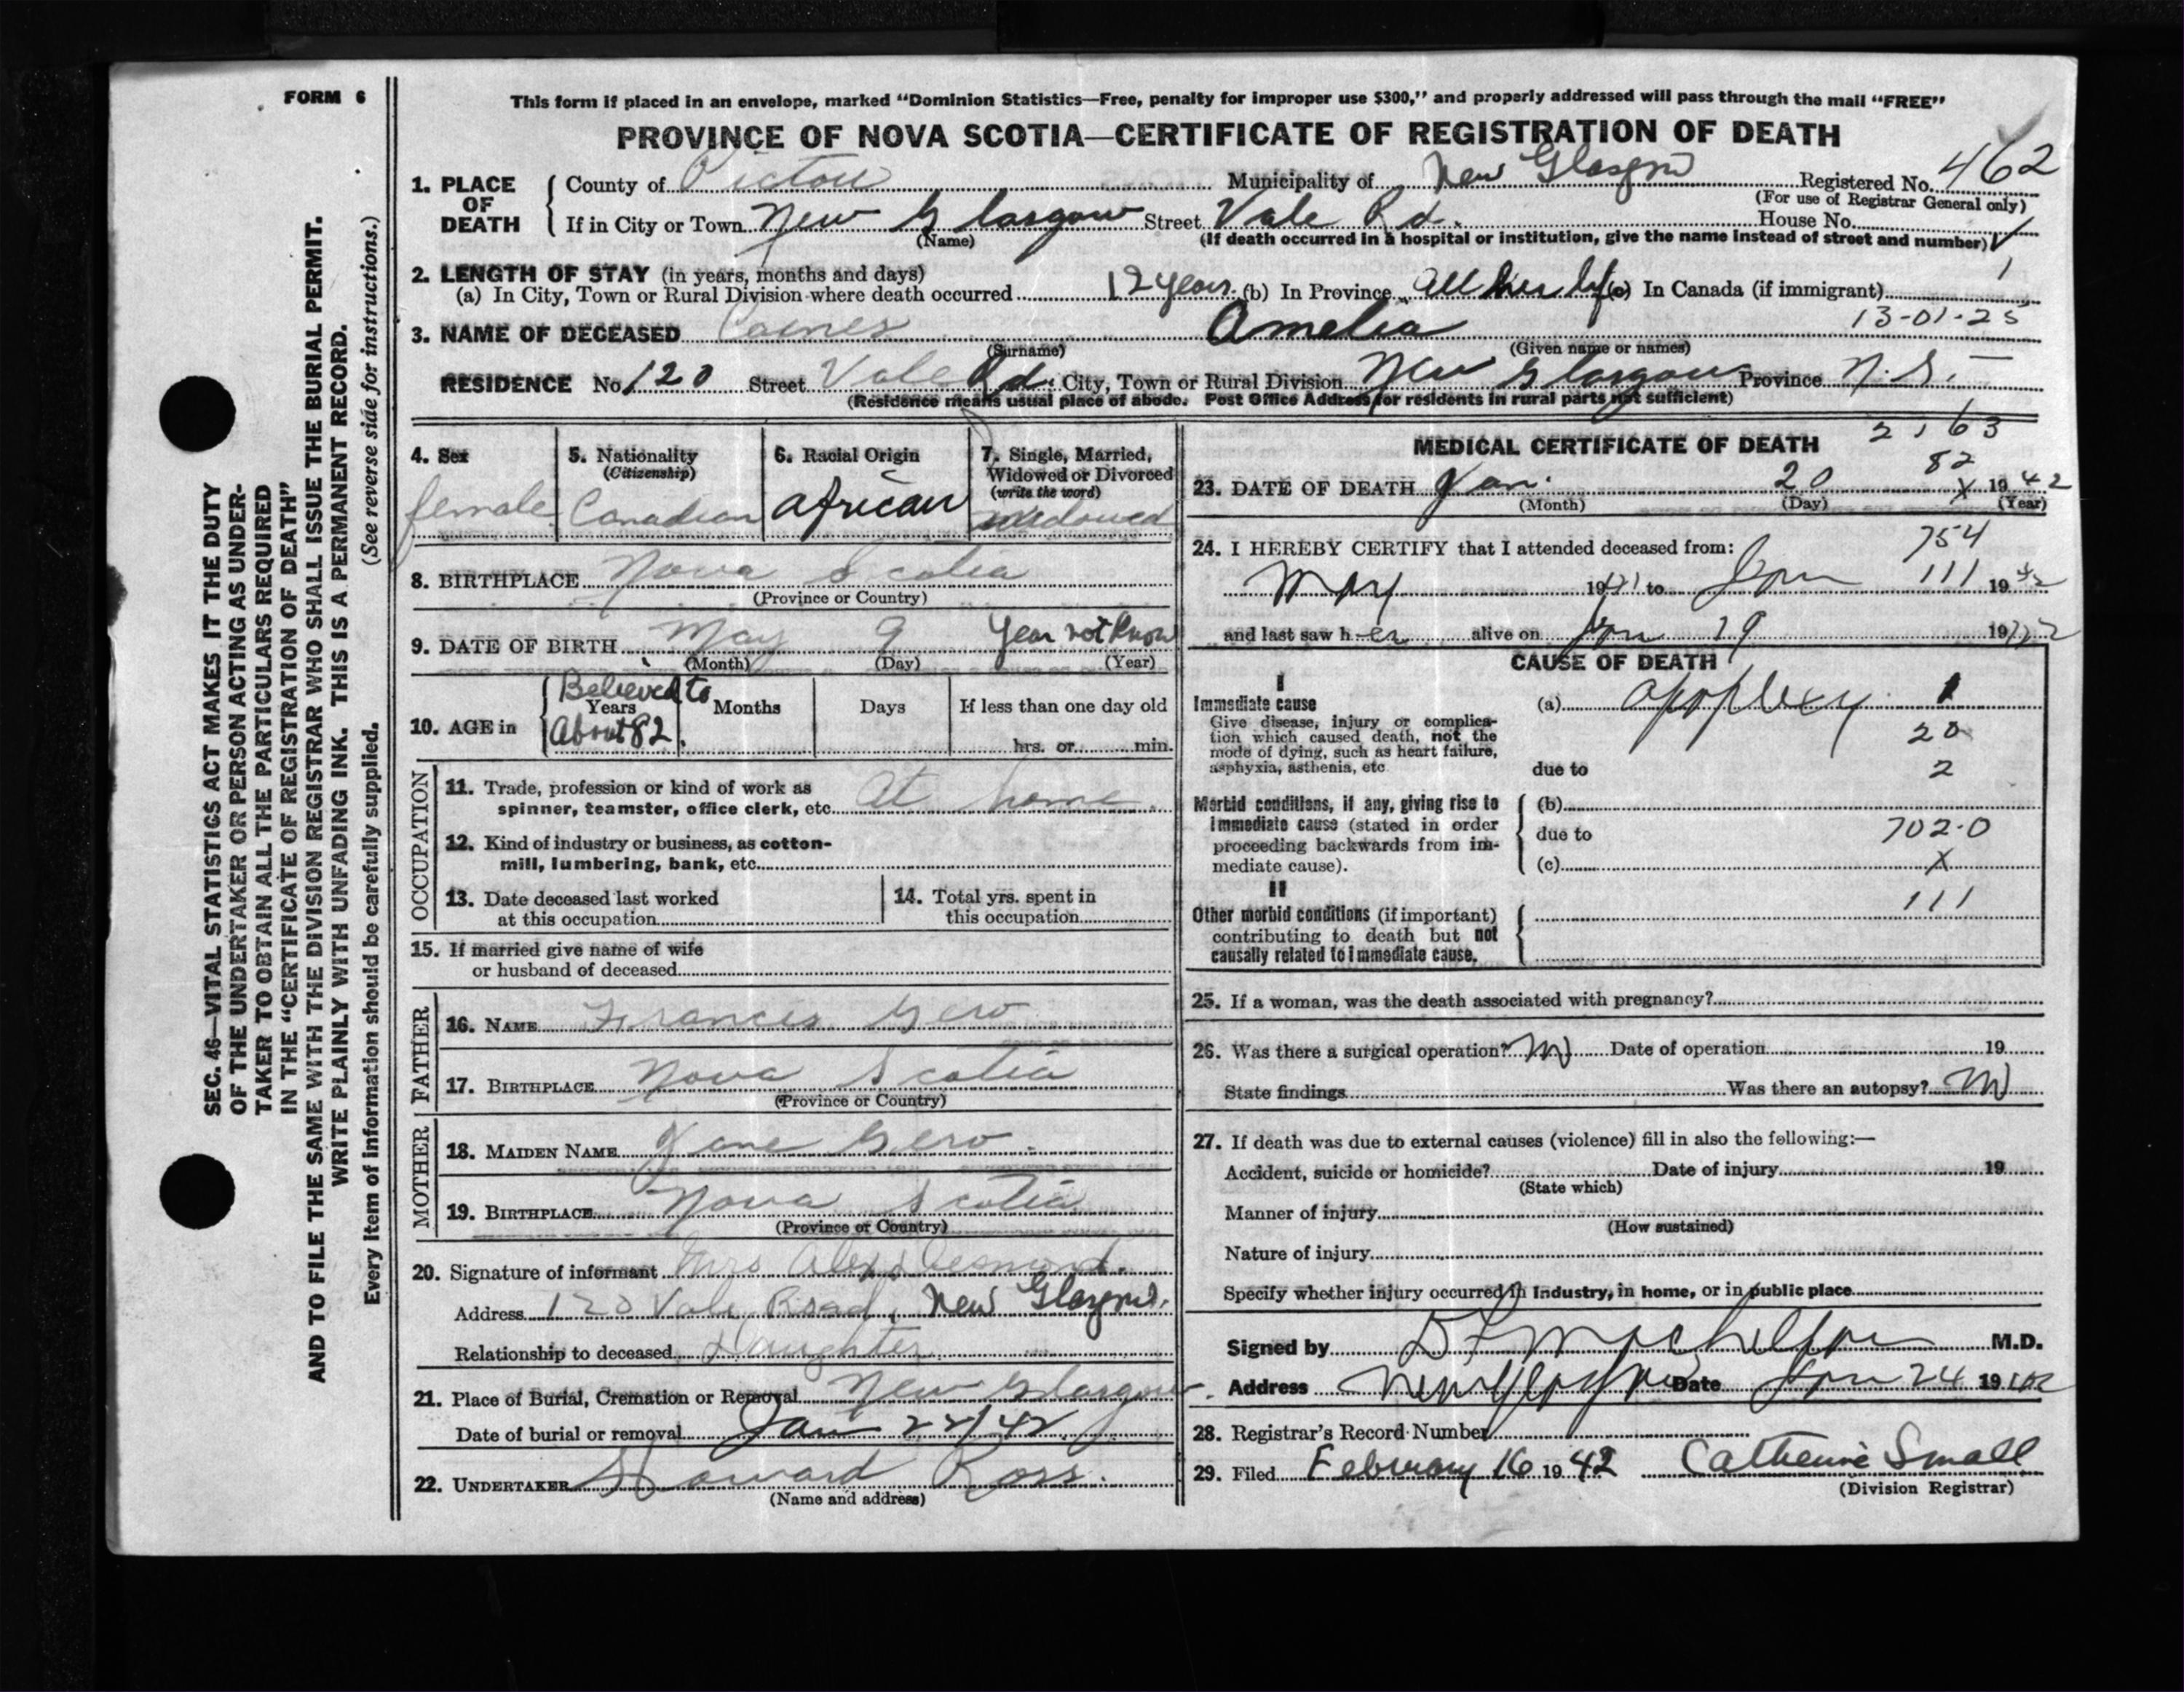 FORM 6
This form if placed in an envelope, marked “Dominion Statistics—Free, penalty for improper use $300,” and properly addressed will pass through the mail “FREE”
PROVINCE OF NOVA SCOTIA—CERTIFICATE OF REGISTRATION OF DEATH
1. PLACE OF DEATH County of Pictou Municipality of New Glasgow Registered No. 462
(For use of Registrar General only)
If in City or Town New Glasgow Street Vale Rd. House No.
(Name) (If death occurred in a hospital or institution, give the name instead of street and number)
2. LENGTH OF STAY (in years, months and days)
(a) In City, Town or Rural Division where death occurred 12 years (b) In Province All her life (c) In Canada (if immigrant)
13-01-25
3. NAME OF DECEASED Amelia
(Surname) (Given name or names)
RESIDENCE No. 120 Street Vale Rd. City, Town or Rural Division New Glasgow Province N.S.
(Residence means usual place of abode. Post Office Address for residents in rural parts not sufficient)
4. Sex 5. Nationality (Citizenship) 6. Racial Origin 7. Single, Married, Widowed or Divorced (write the word)
female Canadian African widowed
8. BIRTHPLACE Nova Scotia
(Province or Country)
9. DATE OF BIRTH May 9 Year not know
(Month) (Day) (Year)
10. AGE in Believed to Years About 82. Months Days If less than one day old
hrs. or min.
OCCUPATION
11. Trade, profession or kind of work as spinner, teamster, office clerk, etc. At home.
12. Kind of industry or business, as cotton-mill, lumbering, bank, etc.
13. Date deceased last worked at this occupation
14. Total yrs. spent in this occupation
15. If married give name of wife
or husband of deceased
FATHER
16. NAME Francis Gero
17. BIRTHPLACE Nova Scotia
(Province or Country)
MOTHER
18. MAIDEN NAME Jane Gero
19. BIRTHPLACE Nova Scotia
(Province or Country)
20. Signature of informant Mrs Alex Desmond.
Address 120 Vale Road, New Glasgow.
Relationship to deceased Daughter
21. Place of Burial, Cremation or Removal New Glasgow.
Date of burial or removal Jan 22/42
22. UNDERTAKER Howard Ross.
(Name and address)
2163
MEDICAL CERTIFICATE OF DEATH
82
23. DATE OF DEATH Jan. 20 1942
(Month) (Day) (Year)
754
24. I HEREBY CERTIFY that I attended deceased from:
May 1941 to Jan 111 1942
and last saw her alive on Jan 19 1942
CAUSE OF DEATH
I
Immediate cause (a) apoplexy 1
Give disease, injury or complication which caused death, not the mode of dying, such as heart failure, asphyxia, asthenia, etc
20
due to 2
Morbid conditions, if any, giving rise to immediate cause (stated in order proceeding backwards from immediate cause).
(b)
due to 702.0
(c) X
II
111
Other morbid conditions (if important) contributing to death but not causally related to immediate cause.
25. If a woman, was the death associated with pregnancy?
26. Was there a surgical operation? No Date of operation 19
State findings Was there an autopsy? No
27. If death was due to external causes (violence) fill in also the following:—
Accident, suicide or homicide? Date of injury 19
(State which)
Manner of injury
(How sustained)
Nature of injury
Specify whether injury occurred in industry, in home, or in public place
Signed by M.D.
Address New Glasgow Date Jan 24 1942
28. Registrar's Record Number
29. Filed February 16 1942 Catherine Small
(Division Registrar)
SEC. 46—VITAL STATISTICS ACT MAKES IT THE DUTY
OF THE UNDERTAKER OR PERSON ACTING AS UNDER-
TAKER TO OBTAIN ALL THE PARTICULARS REQUIRED
IN THE “CERTIFICATE OF REGISTRATION OF DEATH”
AND TO FILE THE SAME WITH THE DIVISION REGISTRAR WHO SHALL ISSUE THE BURIAL PERMIT.
WRITE PLAINLY WITH UNFADING INK. THIS IS A PERMANENT RECORD.
Every item of information should be carefully supplied. (See reverse side for instructions.)